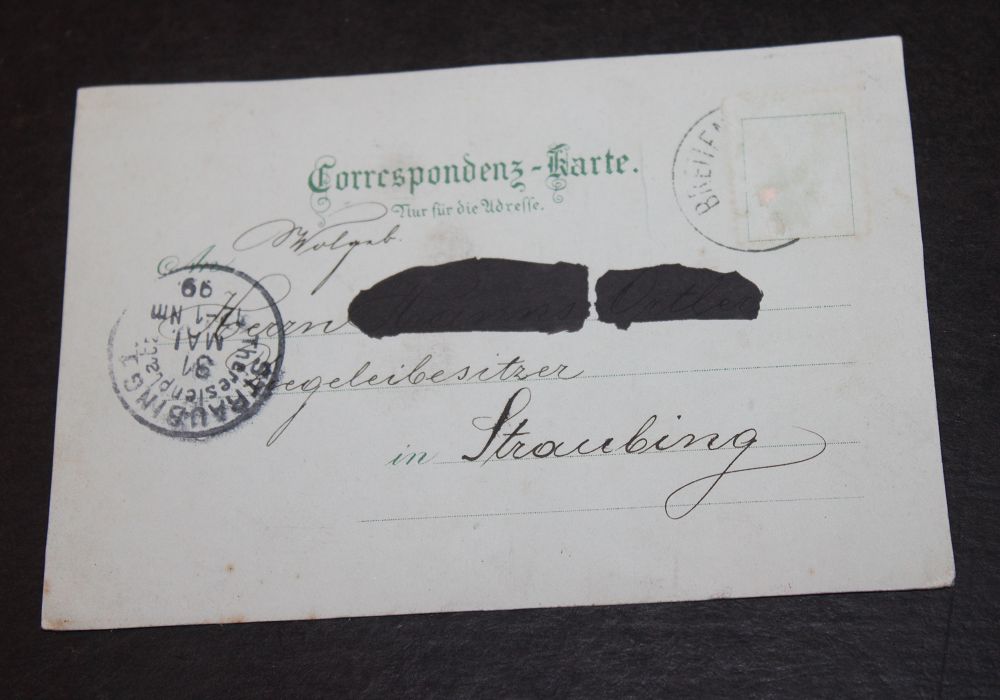 Correspondenz-Karte.
Nur für die Adresse.
An
Wolgeb.
Herrn
Ziegeleibesitzer
in Straubing
STRAUBING I
Theresienpl.
31
MAI
12-1 Nm
99